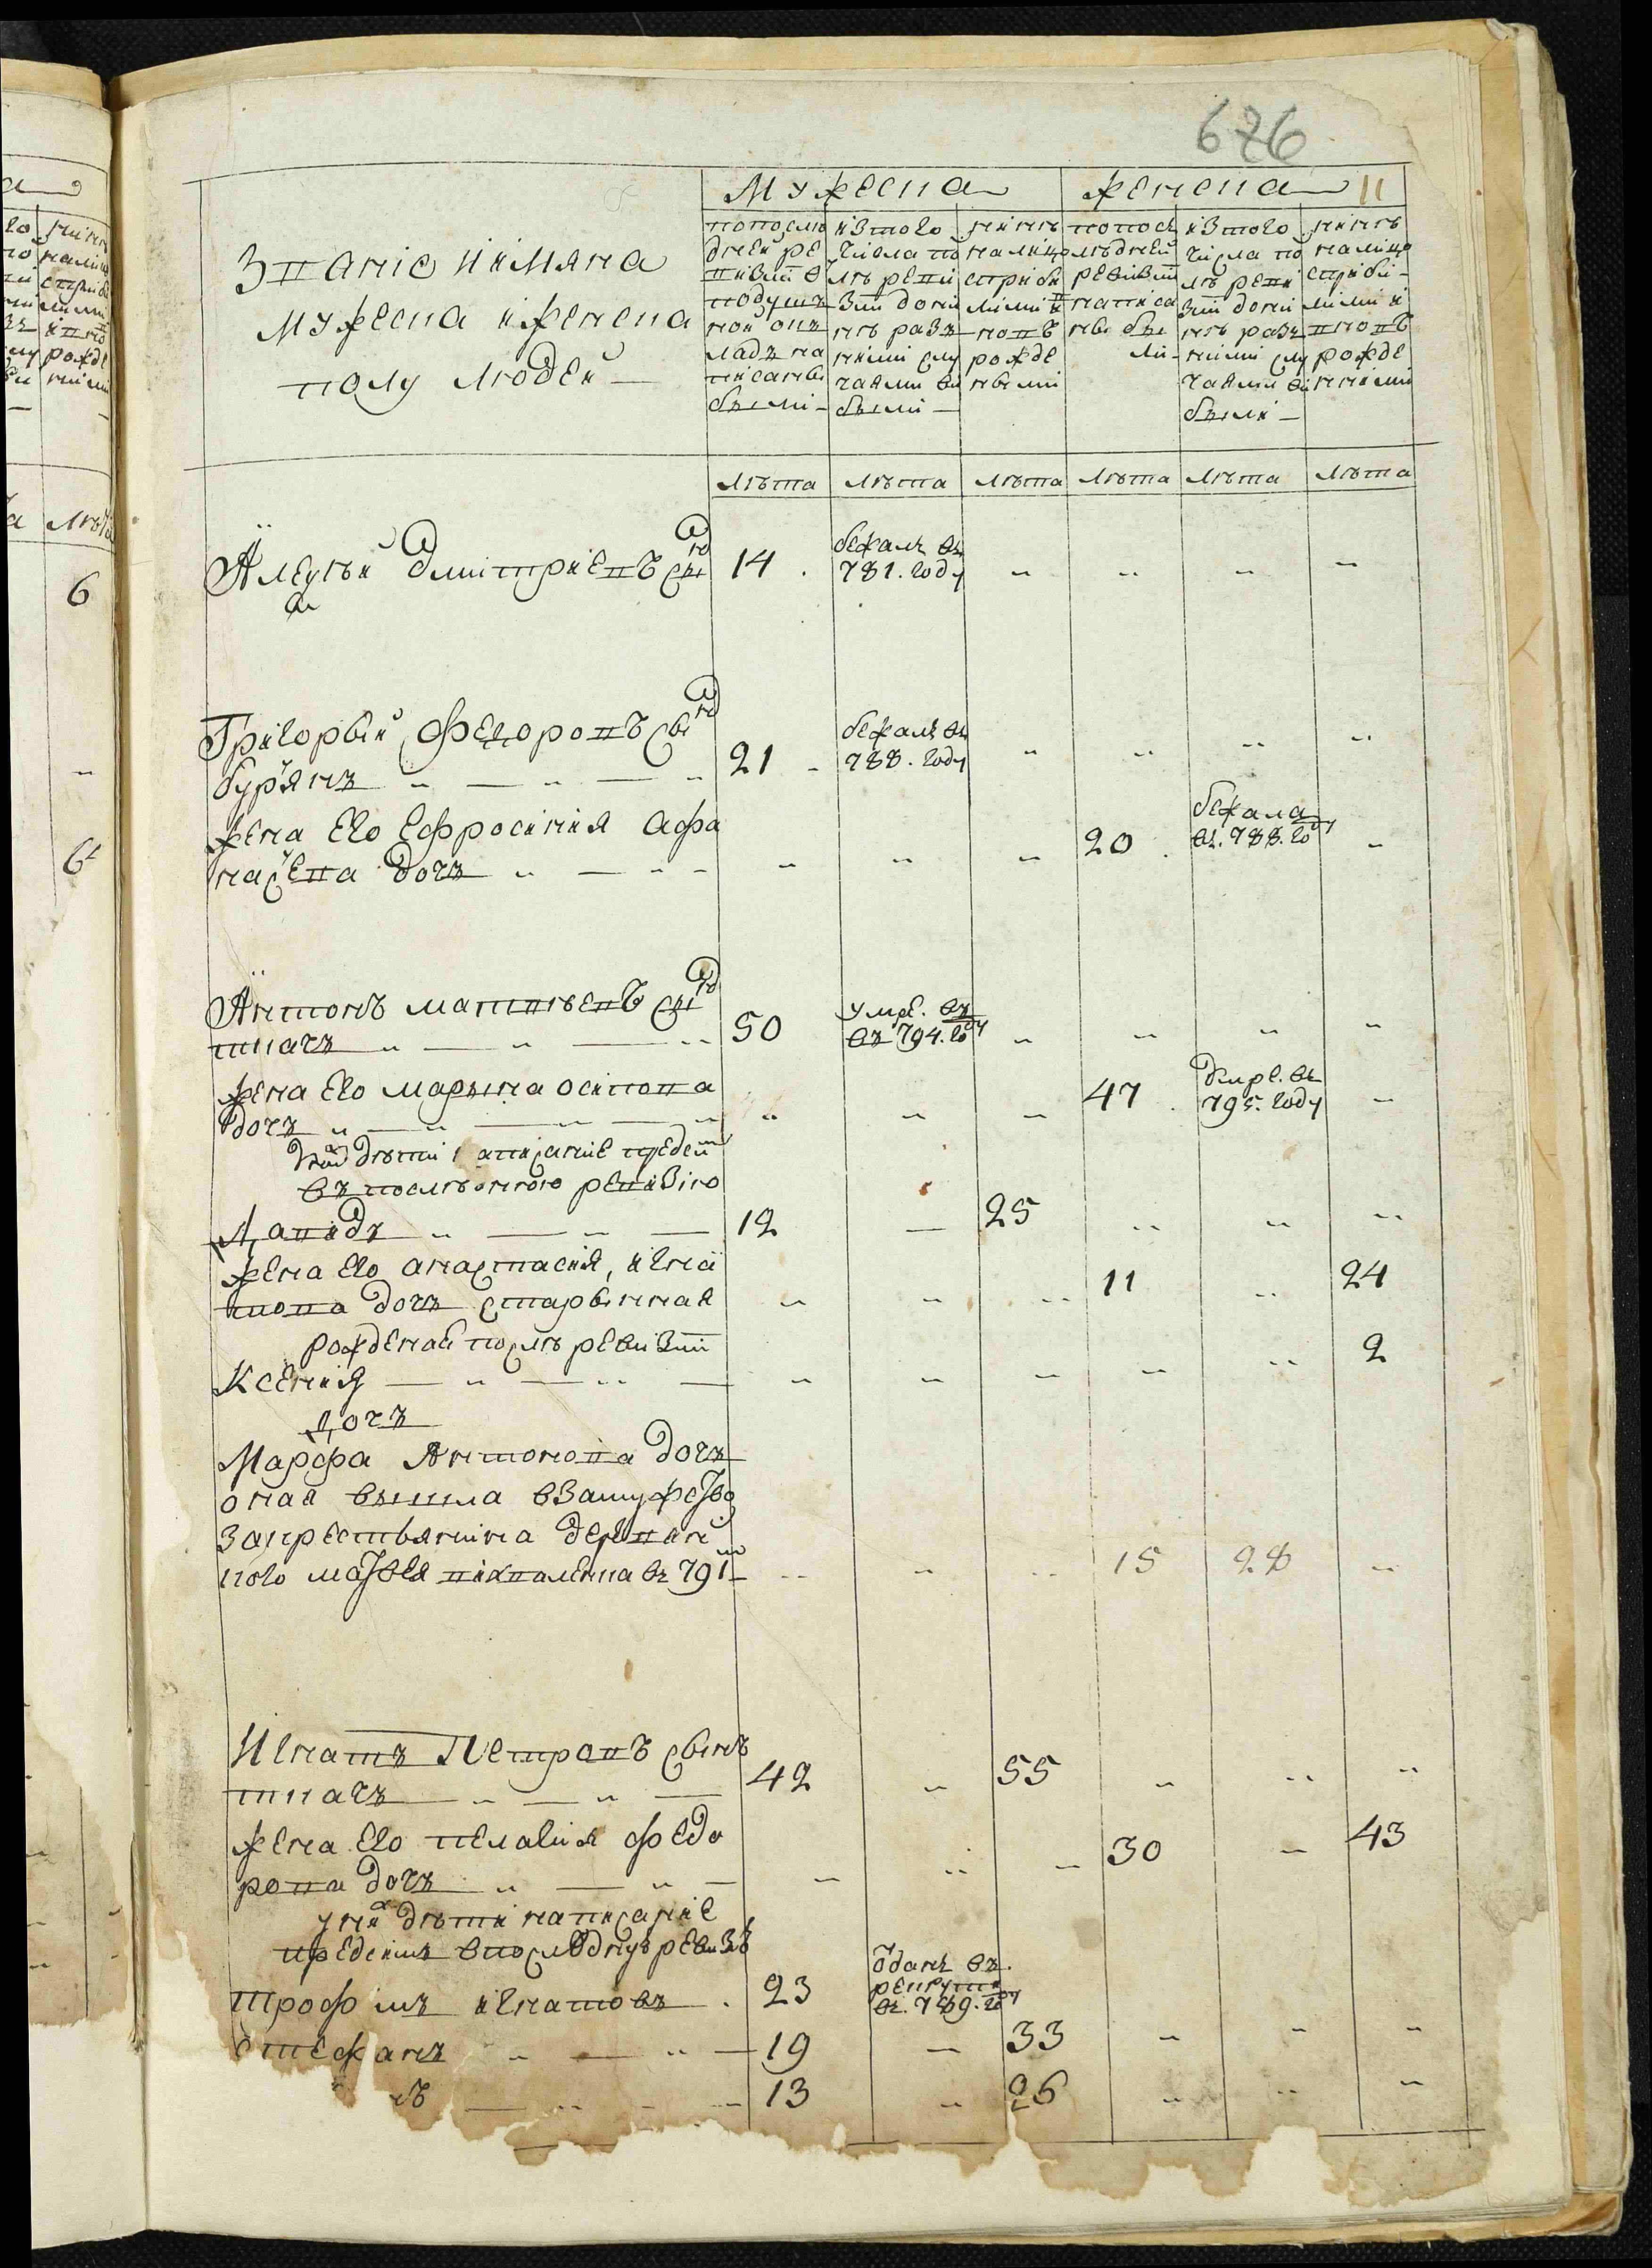 676
Мужеска
женска
11
Звание иимяна
мужеска иженска
полу людей
попосле
дней ре
визиі в
подушн
ной окъ
ладъ на
писаны
были
изтого
числа по
лѣ реви
зиі доны
нѣ разн
ними слу
чаями вы
были
нинѣ
налицо
сприбы
лыми и
новъ
рожде
ными
попосл
лѣдней
ревизіи
написа
ны бы
ли
изтого
числа по
лѣ реви
зиі доны
нѣ разн
ними слу
чаями вы
были
нинѣ
налицо
сприбы
лыми и
вновъ
рожде
нными
лѣта лѣта лѣта лѣта лѣта лѣта
Алеѯѣй дмитриевъ снъ 14 бежалъ въ
781. году
Григорьй федоровъ сынъ
бурянъ 21 бежалъ въ
788. году
жена его ефросиния афа
насева дочъ 20 бежала
въ. 788. году
Антонъ матвѣевъ снъ
ткачъ 50 умре. въ
въ 794. году
жена его марына осипова
дочъ 47 умре. въ
795. году
уних дѣти написание пред сим
въ последнюю ревизию
Давидъ 12 25
жена его анастасия, игна
това дочъ старинная 11 24
рожденая послѣ ревизии
Ксения 2
Дочъ
Марфа Антонова дочъ
оная вышла взамужство
закрестьянина
матвея въ 791м 15 28
Игнатъ Петровъ сынъ
ткачъ 42 55
жена его пелагия федо
рова дочъ 30 43
уних дѣти написание
пред симъ впоследнуъ ревизъ
трофимъ игнатовъ 23 ѿданъ въ.
рекруты
въ. 789. году
Стефанъ 19 33
нъ 13 26